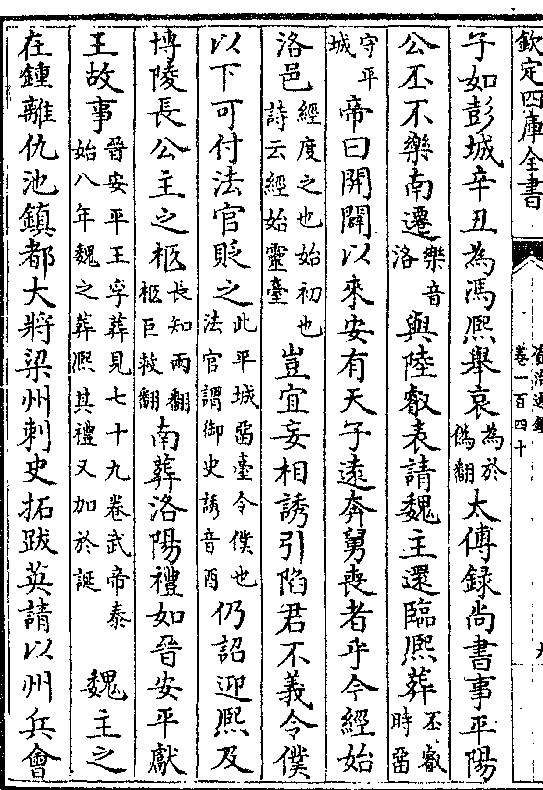 欽定四庫全書
資治通鑑
卷一百四十
子如彭城辛丑為馮熙舉哀為於偽翻太傅録尚書事平陽
公丕不樂南遷樂音洛與陸叡表請魏主還臨熙葬丕叡時留
守平城帝曰開闢以來安有天子遠奔舅喪者乎今經始
洛邑經度之也始初也詩云經始靈臺豈宜妄相誘引陷君不義令僕
以下可付法官貶之此平城留臺令僕也法官謂御史誘音酉仍詔迎熙及
博陵長公主之柩長知兩翻柩巨救翻南葬洛陽禮如晉安平獻
王故事晉安平王孚葬見七十九卷武帝泰始八年魏之葬熙其禮又加於誕魏主之
在鍾離仇池鎮都大將梁州刺史拓跋英請以州兵會